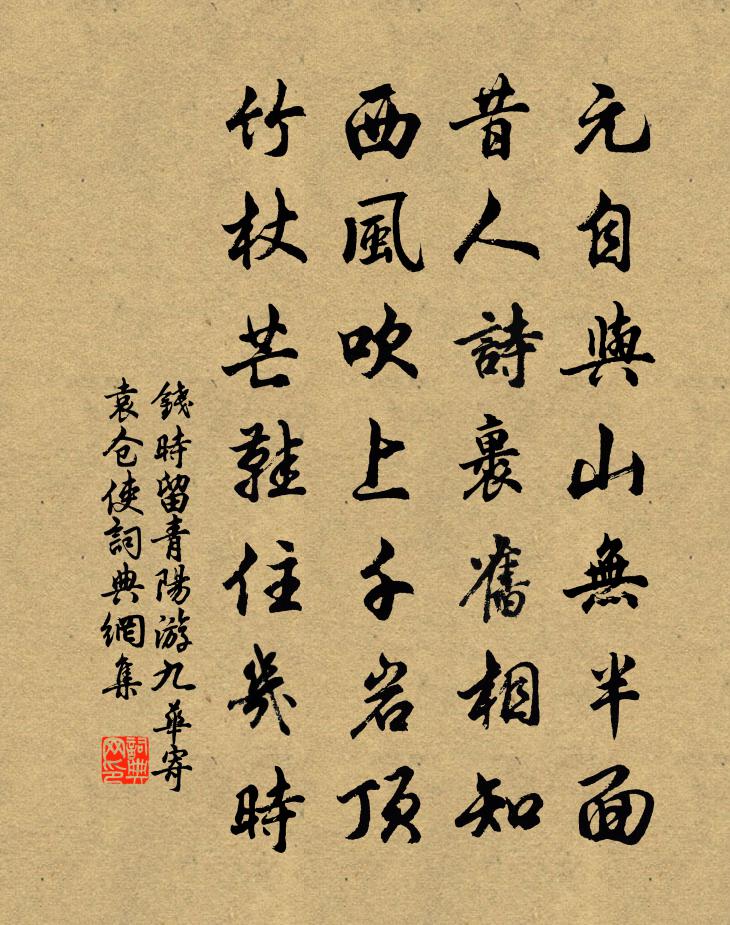 元自與山無半面
昔人詩裏舊相知
西風吹上千岩頂
竹杖芒鞋住幾時
錢時留青陽游九華寄
袁仓使詞典網集
詞典网印